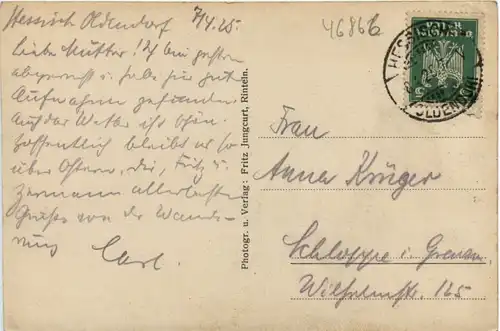 Hessisch Oldendorf 7/4. 25.
46866
Liebe Mutter! Ich bin gestern
abgereist u. habe hier gute
Aufnahme gefunden
Auch das Wetter ist schön.
hoffentlich bleibt es so
über Ostern. Dir, Fritz u.
Hermann allerbesten
Grüße von der Wande-
rung Carl.
Photogr. u. Verlag: Fritz Jungcurt, Rinteln.
Frau
Anna Krüger
Schloppe i. Grenzm.
Wilhelmstr. 165